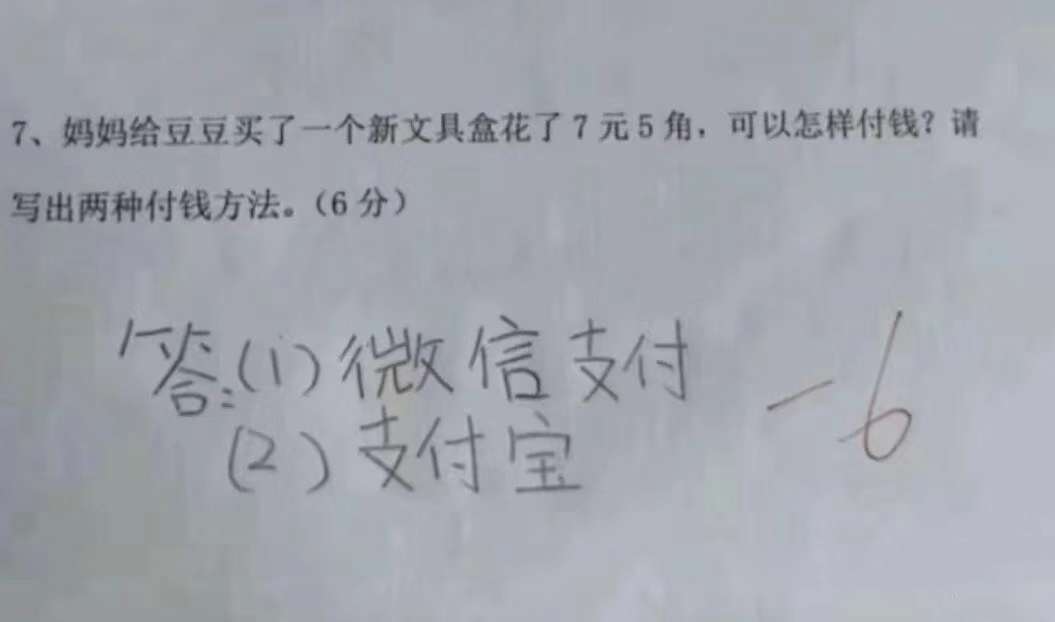 7、妈妈给豆豆买了一个新文具盒花了7元5角，可以怎样付钱？请
写出两种付钱方法。（6分）
答:(1)微信支付
(2)支付宝
-6